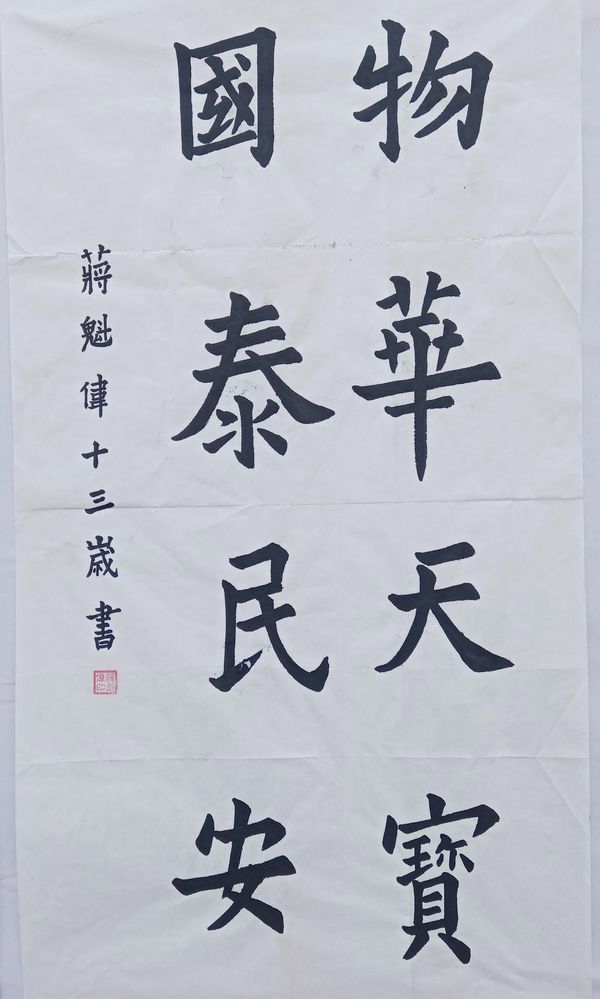 物華天寶
國泰民安
蔣魁偉十三歲書